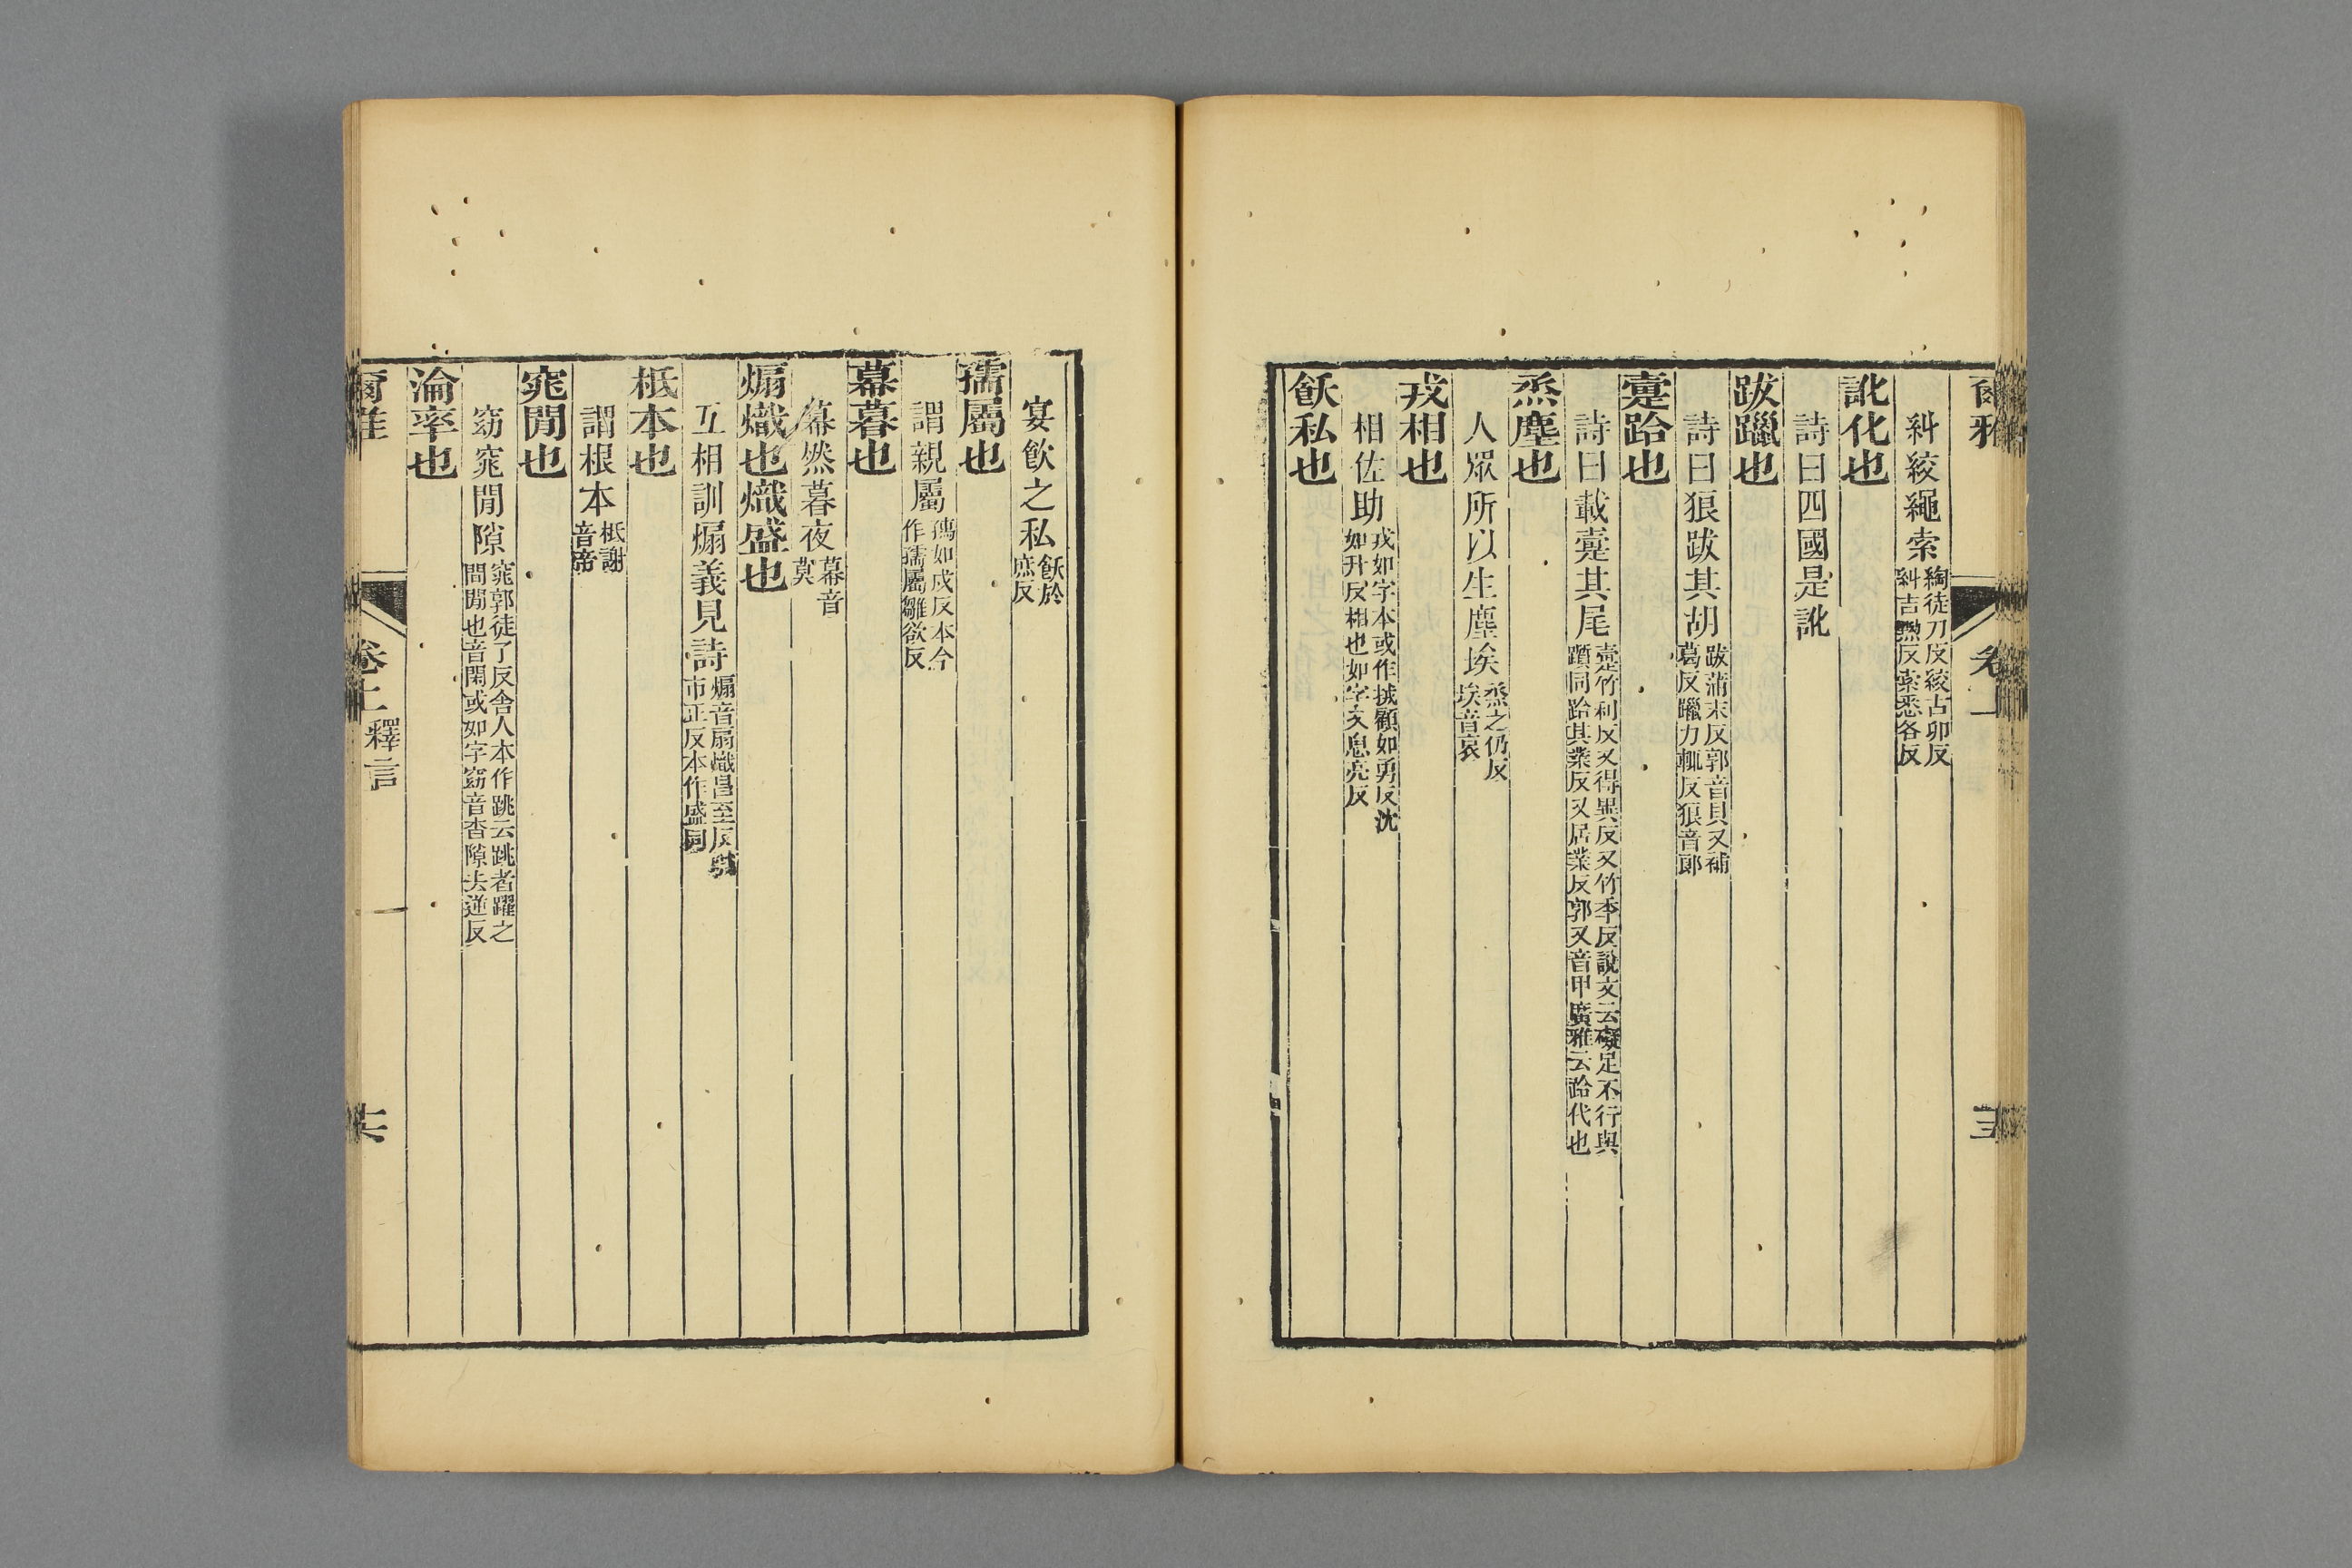 爾雅
卷上
糾絞繩索綯徒刀反絞古卯反
糾吉黝反索悉各反
訛化也
詩曰四國是訛
跋躐也
詩曰狼跋其胡跋蒲末反郭音貝又補
葛反躐力輒反狼音郎
疐跲也
詩曰載疐其尾疐竹利反又得異反又竹季反說文云礙足不行與
躓同跲其業反又居業反郭又音甲廣雅云跲代也
烝塵也
人眾所以生塵埃烝之仍反
埃音哀
戎相也
相佐助戎如字本或作搣顧如勇反沈
如升反相也如字又息亮反
飫私也
宴飲之私飫於
庶反
孺屬也
謂親屬孺如戍反本今
作孺屬雛欲反
幕暮也
幕然暮夜幕音
莫
煽熾也熾盛也
互相訓煽義見詩煽音扇熾昌至反
市正反本作盛同
柢本也
謂根本柢謝
音帝
窕閒也
窈窕閒隙窕郭徒了反舍人本作跳云跳者躍之
間閒也音閑或如字窈音杳隙去逆反
淪率也
爾雅
卷上
釋言